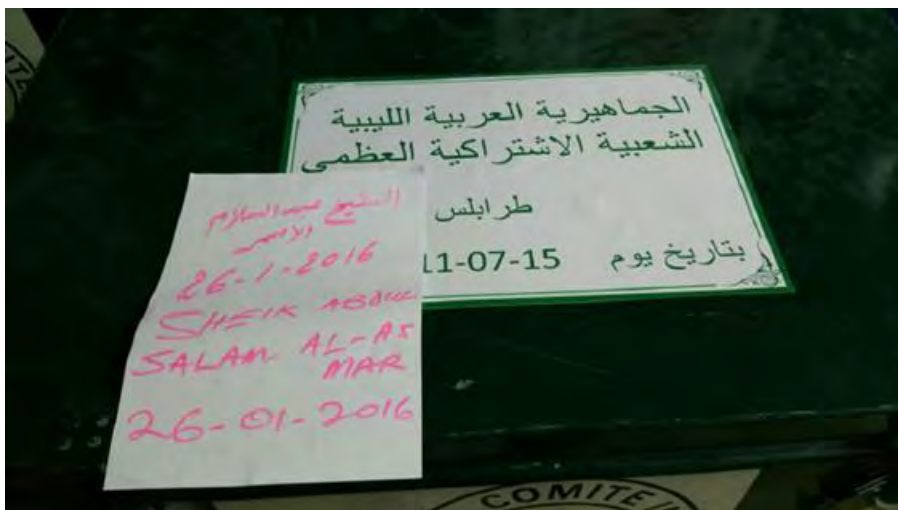 الجماهيرية العربية الليبية
الشعبية الاشتراكية العظمى
طرابلس
بتاريخ يوم 11-07-15
الشيخ عبد السلام
الاسمر
26-1-2016
SHEIK ABDUL
SALAM AL-AS
MAR
26-01-2016
COMITE IN